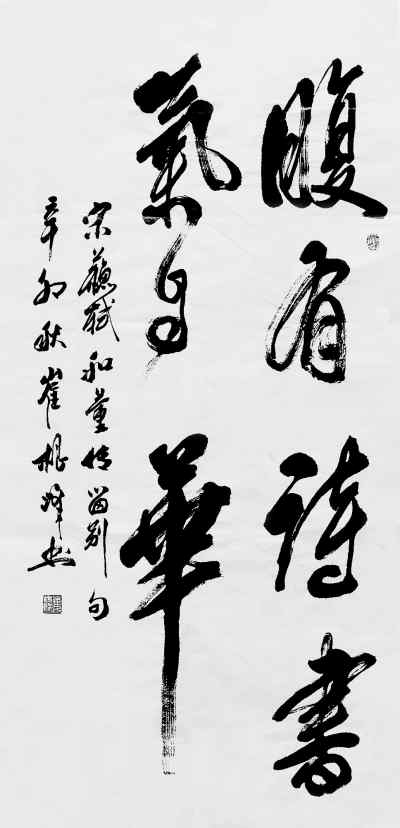 腹有詩書
氣自華
宋蘇軾和董传留别句
辛卯秋崔根峰书